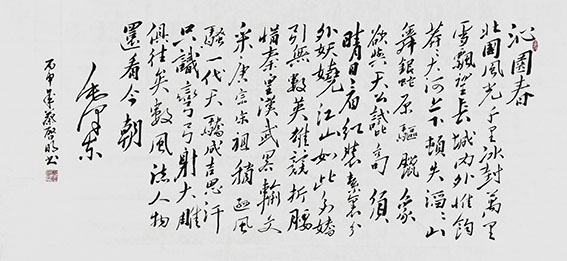 沁園春
北國風光千里冰封萬里
雪飄望長城內外惟餘
莽莽大河上下頓失滔滔山
舞銀蛇原驅臘象
欲與天公試比高須
晴日看紅裝素裹分
外妖嬈江山如此多嬌
引無數英雄競折腰
惜秦皇漢武略輸文
采唐宗宋祖稍遜風
騷一代天驕成吉思汗
只識彎弓射大雕
俱往矣數風流人物
還看今朝
毛澤東
丙申年啓明書